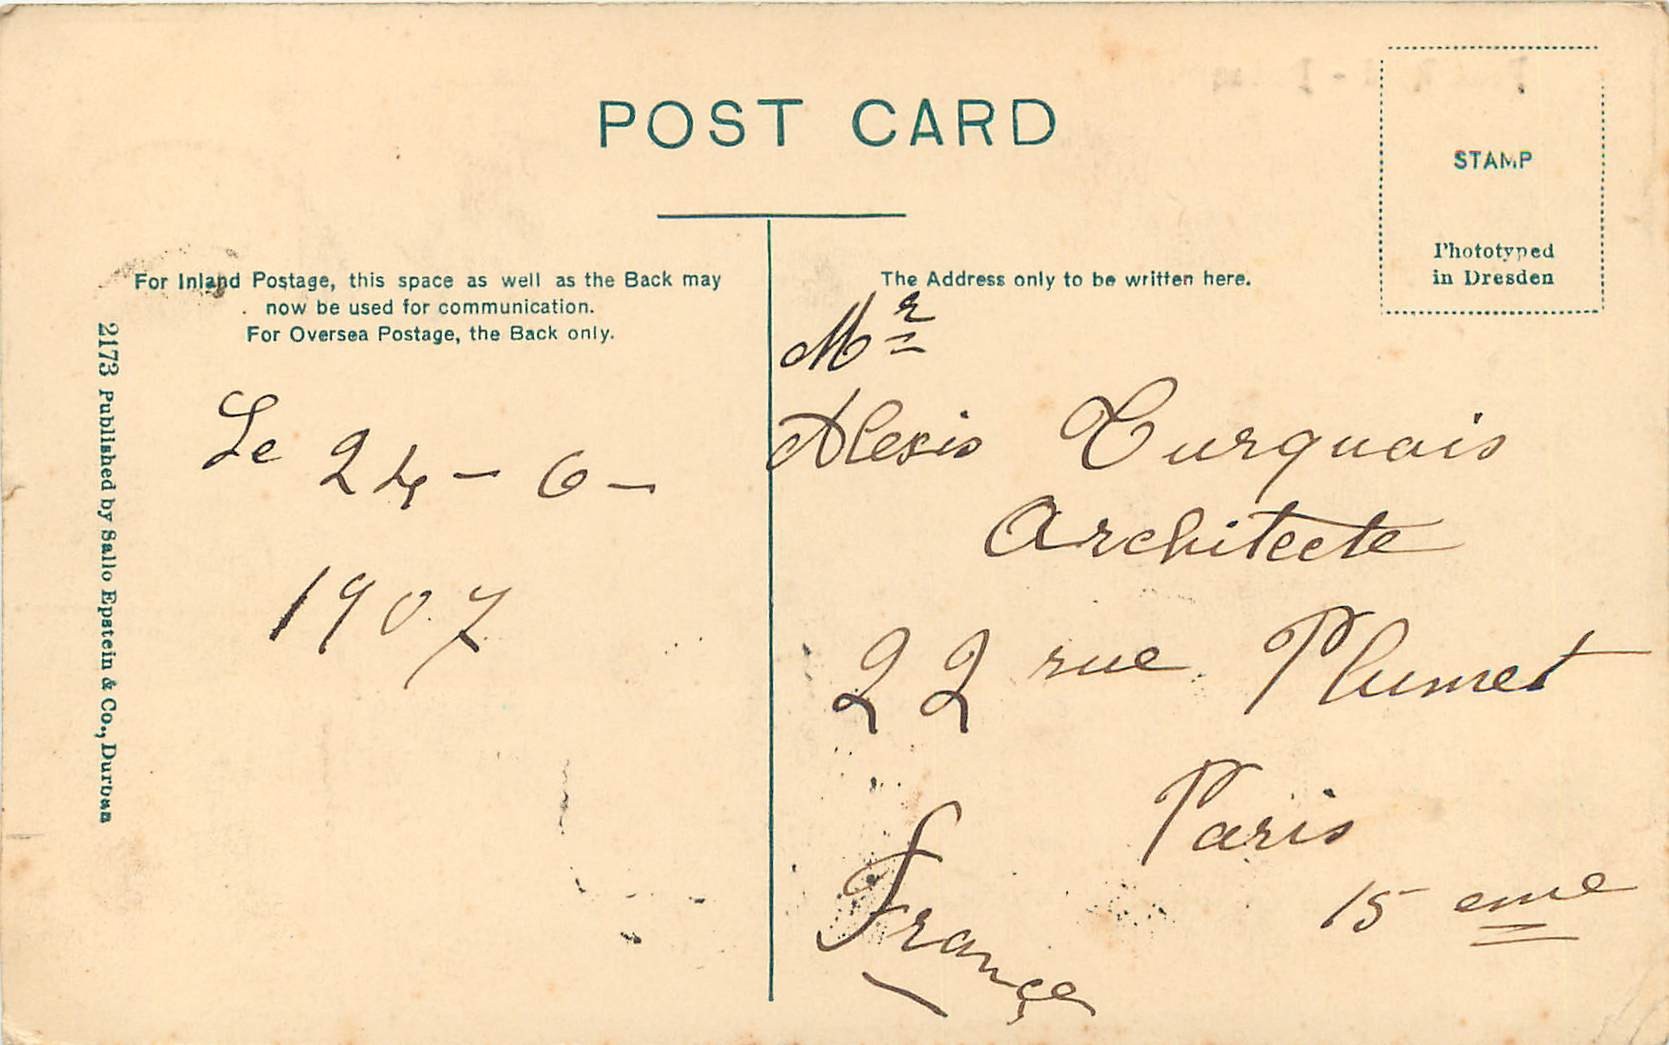 POST CARD
STAMP
Phototyped
in Dresden
For Inland Postage, this space as well as the Back may
now be used for communication.
For Oversea Postage, the Back only.
The Address only to be written here.
2173 Published by Sallo Epstein & Co., Durban
Le 24-6-
1907
Mr
Alexis Turquais
Architecte
22 rue Plumet
Paris
15 eme
Françe